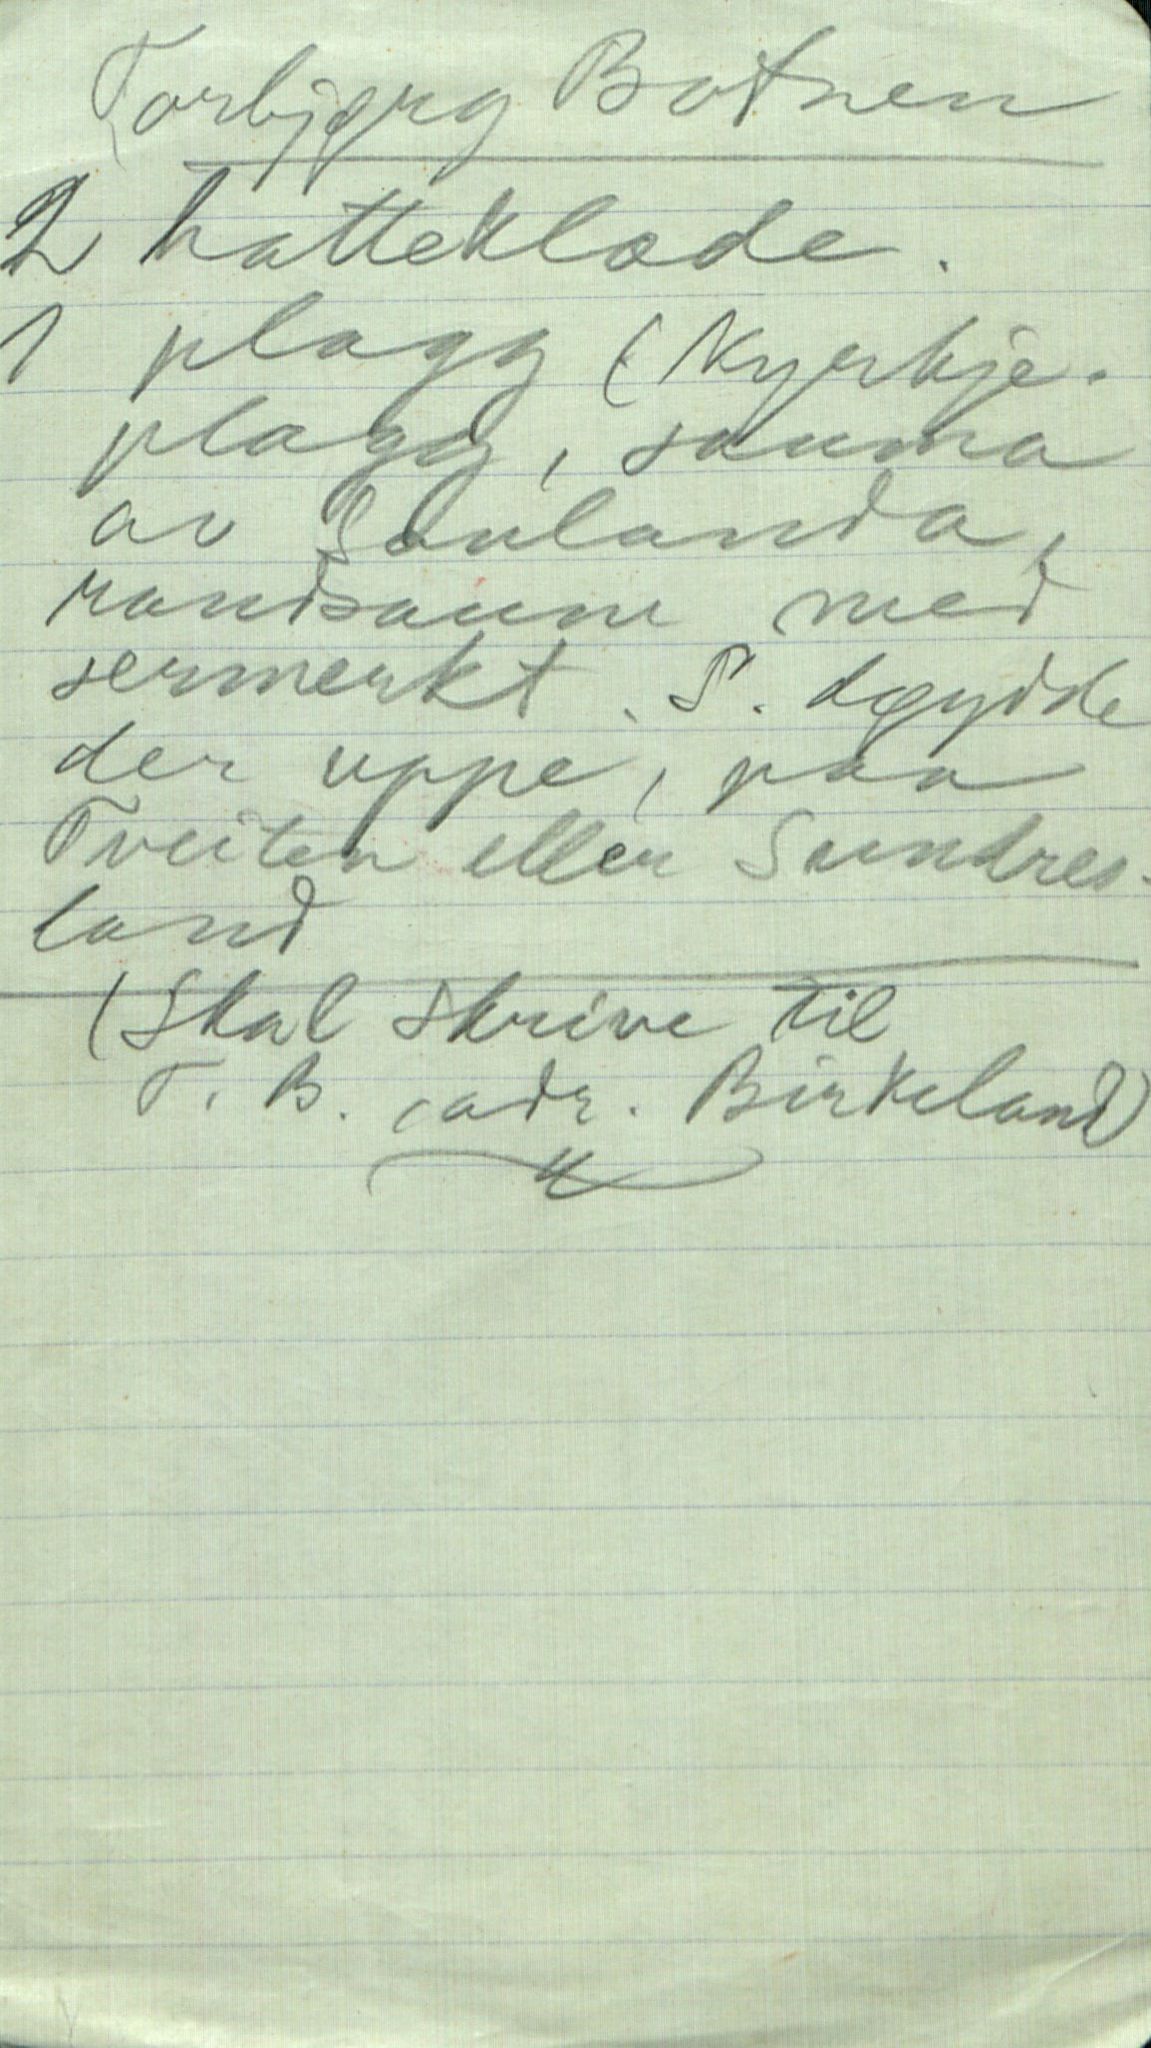 Torbjørg Botnen
2 hatteklade.
1 plagg (Kyrkje-
plagg, sauma
av Saulanda,
randsaum med
sermerkt. S. døydde
der uppe, paa
Tveiten eller Sundres-
land
(Skal skrive til
T. B. adr. Birkeland)